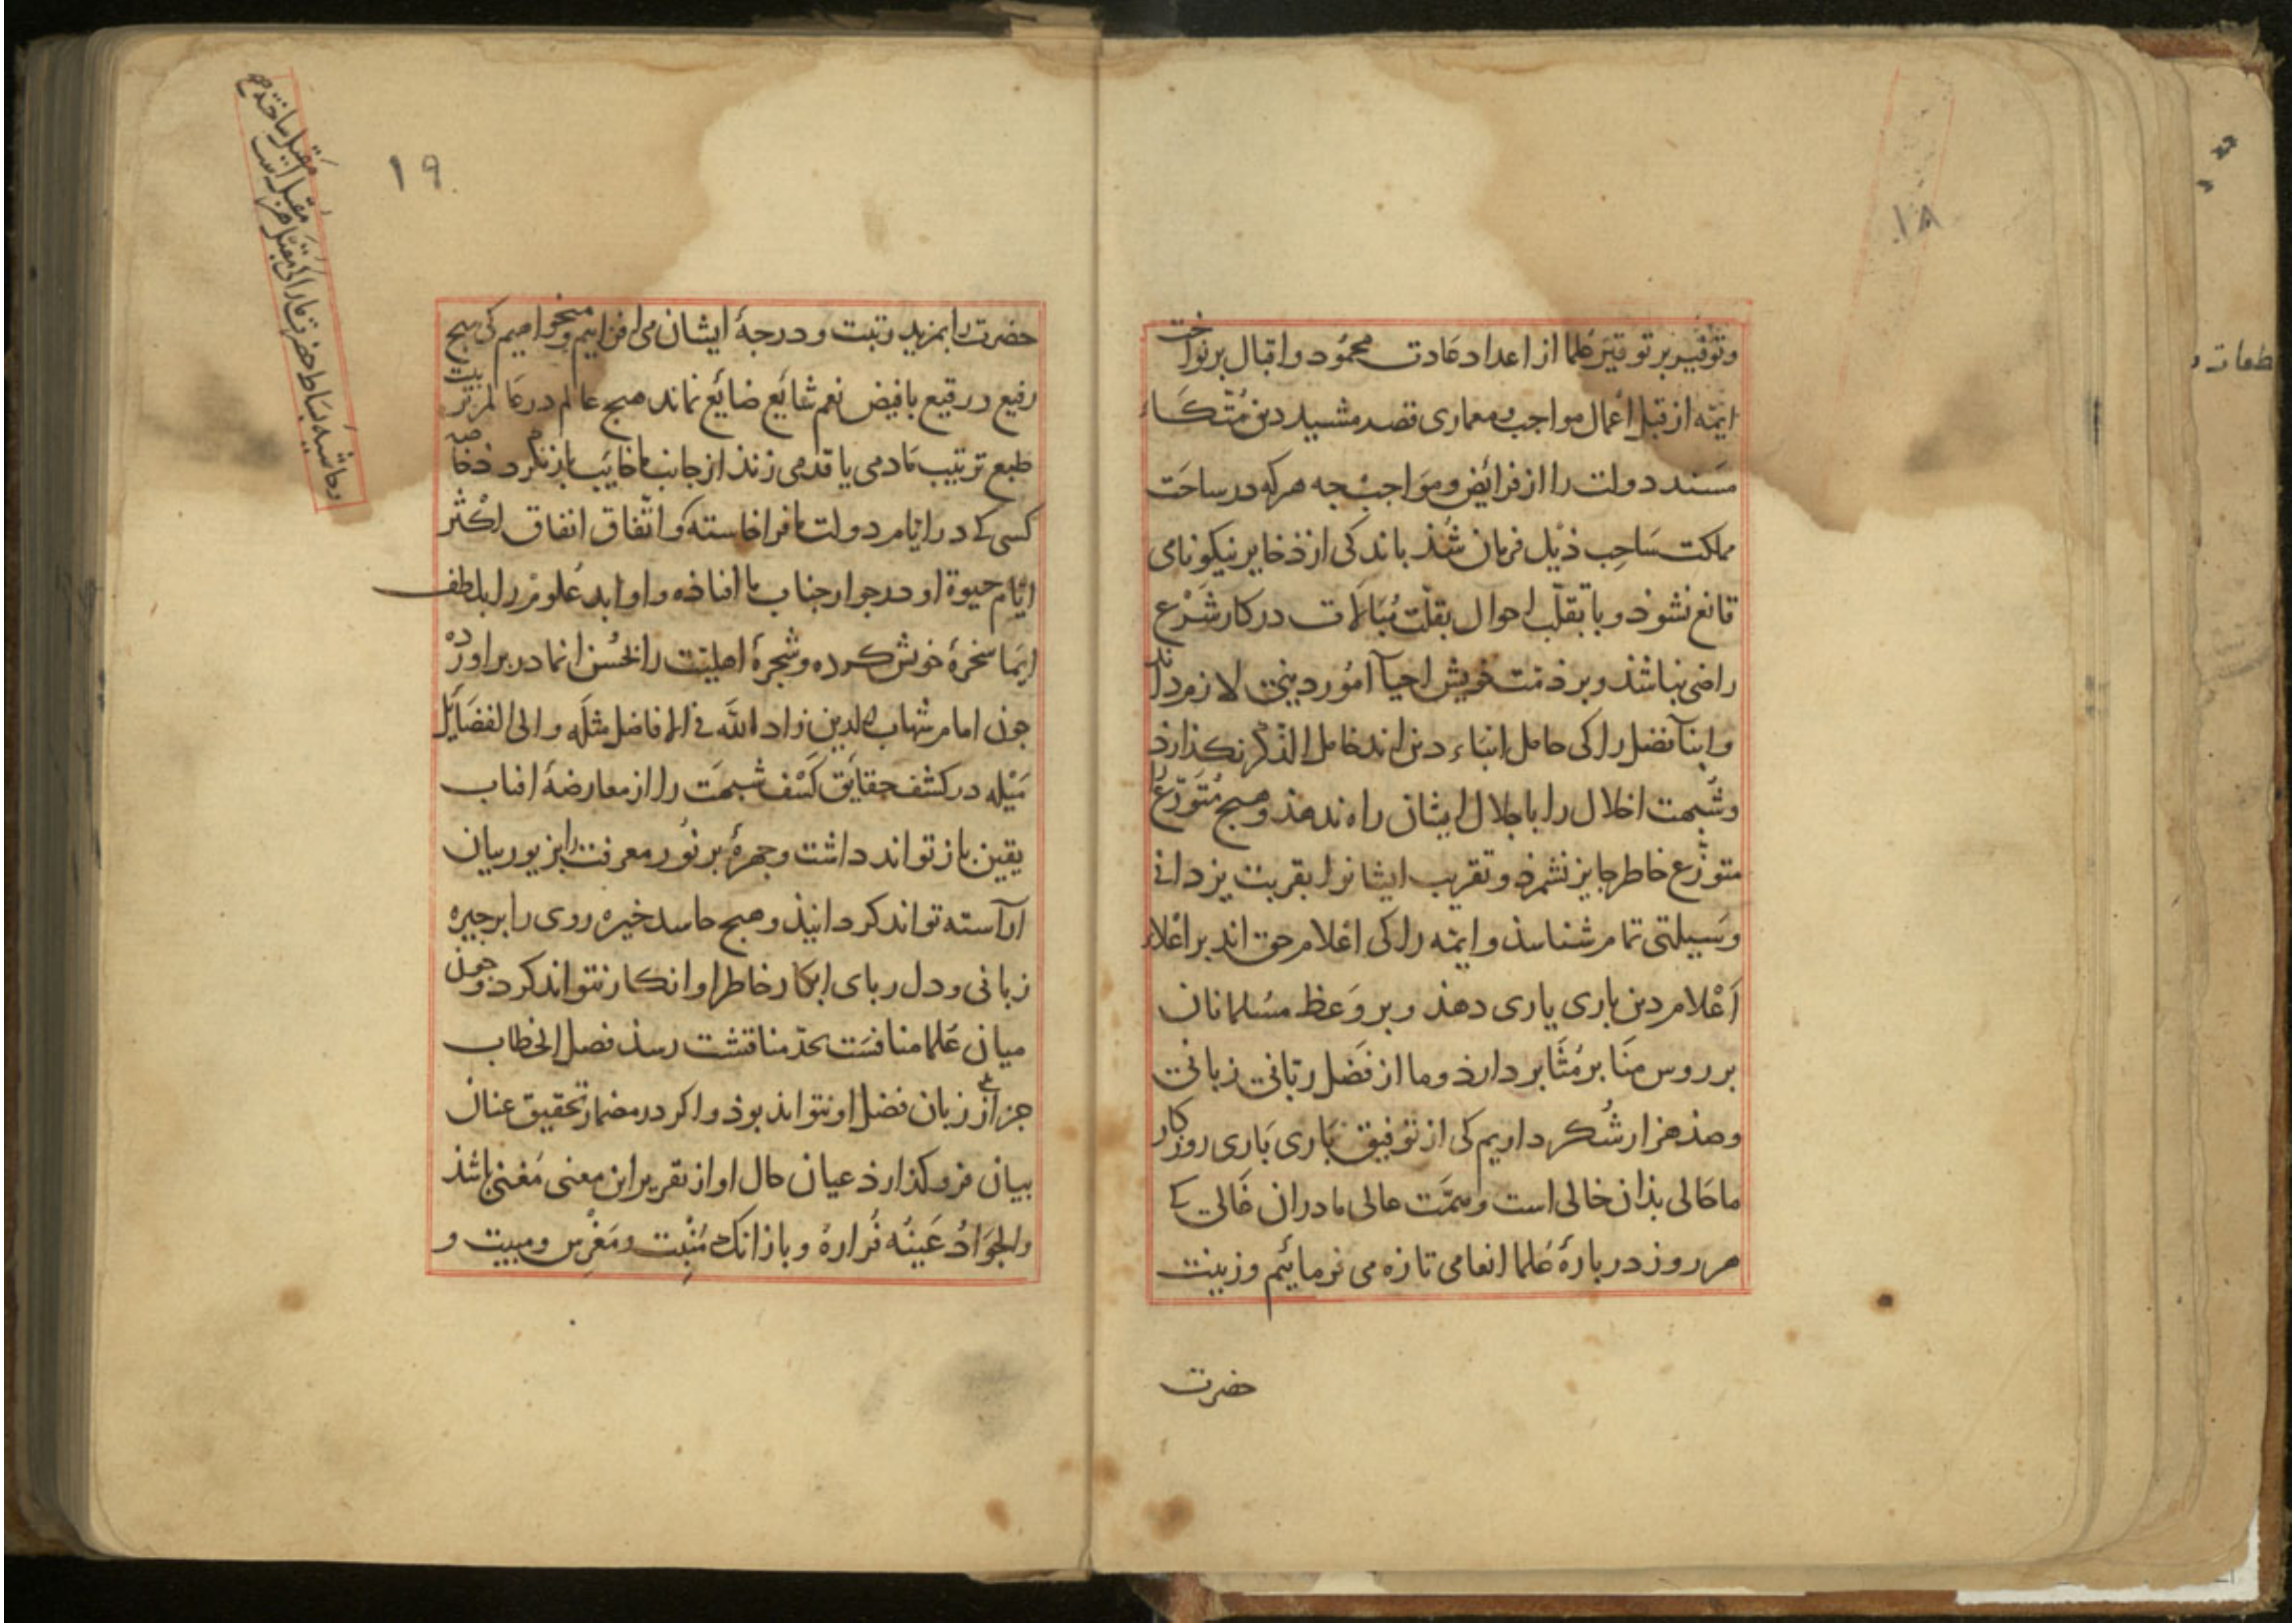 ۱۸
و توفیر بر توقیر علما از اعداد عادت محمود و اقبال بر نواخت
ایمّه از قبل اعمال مواجب و معماری قصر مشید دین متّکاء
مسند دولت را از فرائض و مواجب جه هرکه در ساحت
مملکت ساحب ذیل فرمان شذ باندکی از ذخایر نیکونامی
قانع نشوذ و با تقلّب احوال بقلّت مبالات در کار شرع
راضی نباشذ و بر ذمّت خویش احیآ امور دینی لازم داند
و ابنآ فضل را کی حامل انباء دین اند خامل الذکر نکذارد
و شیمت اخلال را باجلال ایشان راه ندهذ و هیج متورّع را
متوزّع خاطر جایز نشمرذ و تقریب ایشانرا بقربت یزدانی
وسیلتی تمام شناسذ و ایمّه را کی اعلام حق اند بر اعلاء
اعلام دین باری یاری دهذ و بر وعظ مسلمانان
بر روس منابر مثابر دارذ و ما از فضل ربّانی زبانی
و صذ هزار شکر داریم کی از توفیق باری باری روزکار
ما حالی بذان حالی است و همّت عالی ما دران غالی کی
هر روز در بارهٔ علما انعامی تازه می فرمائیم و زینت
حضرت
۱۹
حضرت را بمزید رتبت و درجهٔ ایشان می افزاییم و میخواهیم کی هیج
رفیع در رقیع بافیض نعم شایع ضایع نماند هیج عالم در عالم تربیت
طبع ترتیب ما دمی یا قدمی زند از جانب ما خایب باز نکردد خاصه
کسی کی در ایّام دولت ما فراخاسته و اتّفاق انفاق اکثر
ایّام حیوة او در جوار جناب ما افتاذه و اوابد علوم را بلطف
ایما سخرهٔ خویش کرده و شجرهٔ اهلیّت را بحسن انما در بر اورده
جون امام شهاب الدین زاد الله فی الافاضل مثله و الی الفضایل
میله در کشف حقایق کسف شبهت را از معارضهٔ افتاب
یقین باز تواند داشت و جهرهٔ بر نور معرفت را بزیور بیان
آراسته تواند کردانیذ و هیج حاسد خیره روی را بر جیره
زبانی و دل ربای ابکار خاطر او انکار نتواند کرد و جون
میان علما منافست بحدّ مناقشت رسذ فصل الخطاب
جز از زبان فضل او نتواند بوذ و اکر در مضمار تحقیق عنان
بیان فرو کذارد عیان حال او از تقریر این معنی مغنی باشذ
و الجواد عینه فراره و باز انک منبت و مغرس و مبیت و